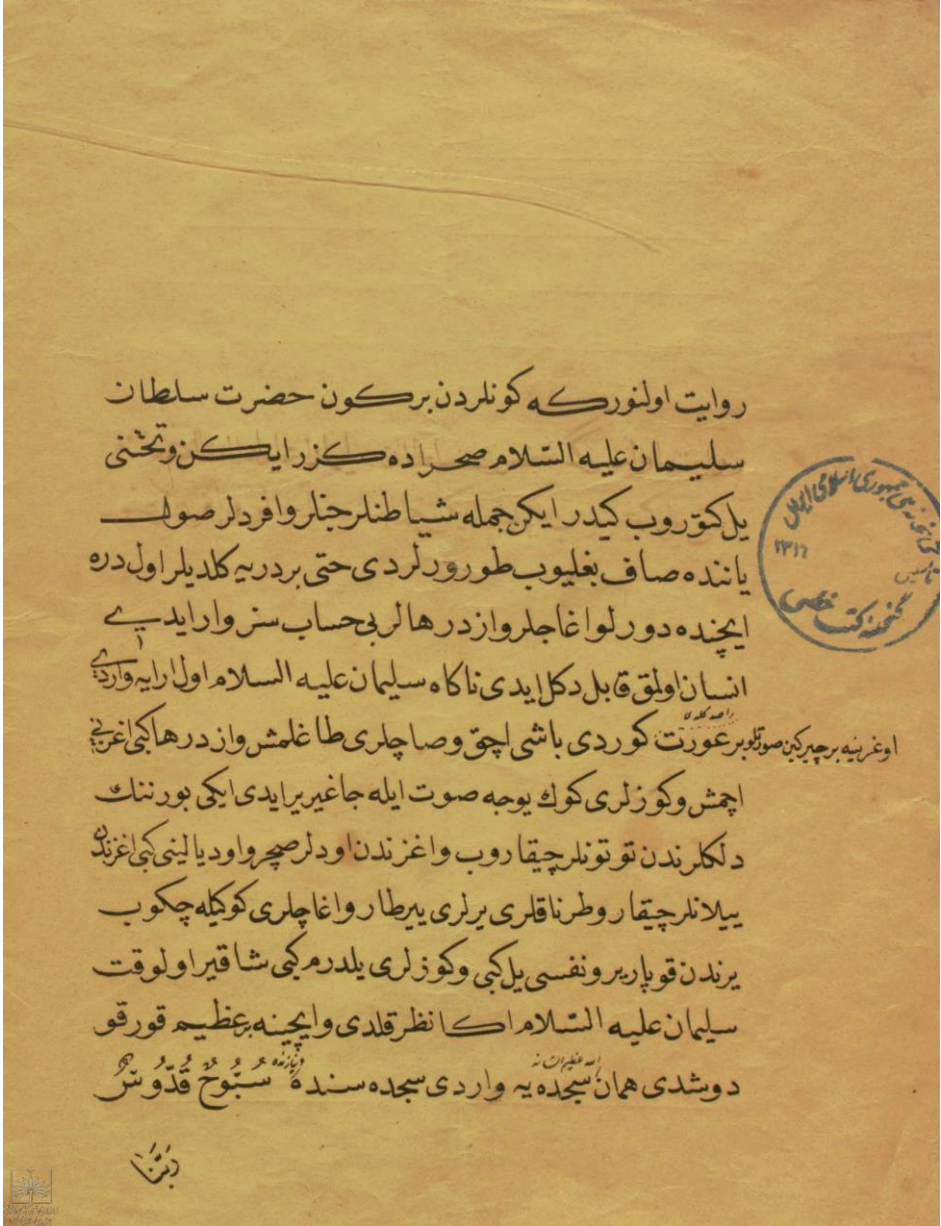 روايت اولنوركه كونلردن بركون حضرت سلطان
سليمان عليه السّلام صحراده كزر ايكن و تختنى
يل كتوروب كيدر ايكن جمله شياطنلر جنلر و افردلر صول
ياننده صاف بغليوب طورورلردى حتى بر دريه كلديلر اول دره
ايچنده دورلو اغاجلر و ازدرهالر بى حساب سز وار ايدى
انسان اولق قابل دكل ايدى ناكاه سليمان عليه السلام اول ارايه واردى
اوغرينه بر چيركين صورتلو بر عورت كوردى باشى اچق و صاچلرى طاغلمش و ازدرها كبى اغزينى
اچمش و كوزلرى كوك يوجه صوت ايله جاغيرير ايدى ايكى بورننك
دلكلرندن توتونلر چيقاروب و اغزندن اودلر صچر و اود يالينى كبى اغزندن
ييلانلر چيقار و طرناقلرى يرلرى ييرطار و اغاچلرى كوكيله چكوب
يرندن قوپارير و نفسى يل كبى و كوزلرى يلدرم كبى شاقير اولوقت
سليمان عليه السّلام اكا نظر قلدى و ايچينه بر عظيم قورقو
دوشدى همان سجده يه واردى سجده سنده سُبُّوحٌ قُدُّوسٌ
رَبُّنَا
كتابخانه ى جمهورى اسلامى ايران
تاسيس
گنجينه كتب خطى